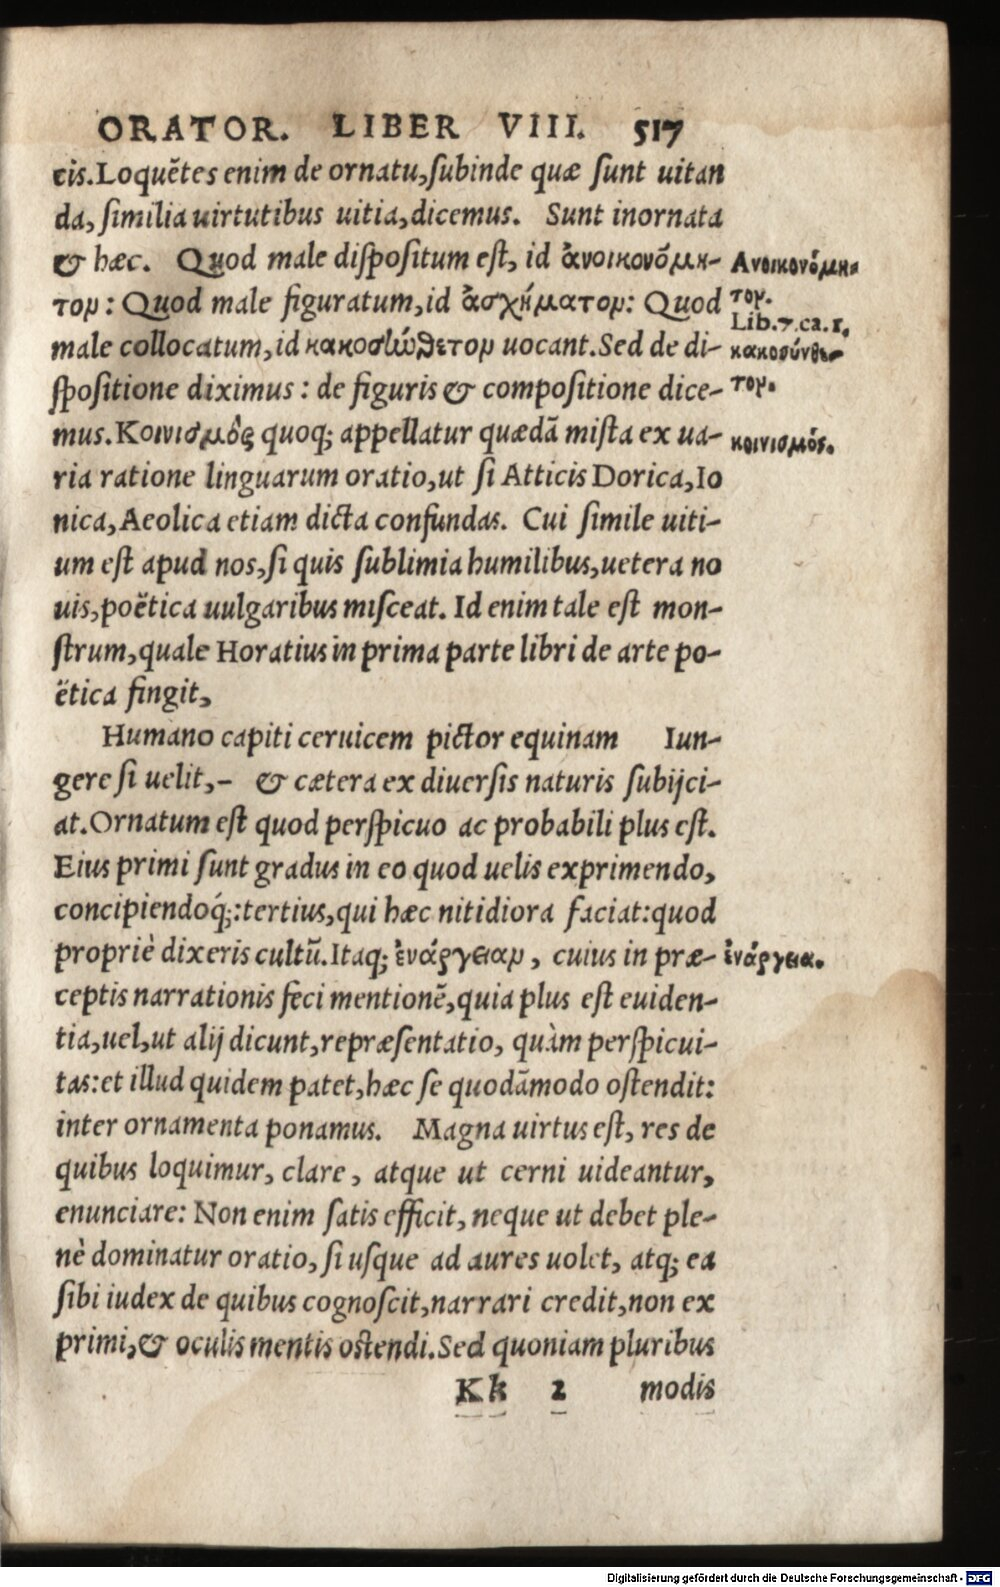 ORATOR. LIBER VIII. 517
cis. Loquẽtes enim de ornatu, subinde quæ sunt uitan
da, similia uirtutibus uitia, dicemus. Sunt inornata
& hæc. Quod male dispositum est, id ἀνοικονόμη-
τον: Quod male figuratum, id ἀσχήματον: Quod
male collocatum, id κακοσύνθετον uocant. Sed de di-
spositione diximus: de figuris & compositione dice-
mus. Κοινισμὸς quoq; appellatur quædã mista ex ua-
ria ratione linguarum oratio, ut si Atticis Dorica, Io
nica, Aeolica etiam dicta confundas. Cui simile uiti-
um est apud nos, si quis sublimia humilibus, uetera no
uis, poëtica uulgaribus misceat. Id enim tale est mon-
strum, quale Horatius in prima parte libri de arte po-
ëtica fingit,
Humano capiti ceruicem pictor equinam Iun-
gere si uelit, - & cætera ex diuersis naturis subijci-
at. Ornatum est quod perspicuo ac probabili plus est.
Eius primi sunt gradus in eo quod uelis exprimendo,
concipiendoq́;: tertius, qui hæc nitidiora faciat: quod
propriè dixeris cultũ. Itaq; ἐνάργειαν, cuius in præ-
ceptis narrationis feci mentionẽ, quia plus est euiden-
tia, uel, ut alij dicunt, repræsentatio, quàm perspicui-
tas: et illud quidem patet, hæc se quodãmodo ostendit:
inter ornamenta ponamus. Magna uirtus est, res de
quibus loquimur, clare, atque ut cerni uideantur,
enunciare: Non enim satis efficit, neque ut debet ple-
nè dominatur oratio, si usque ad aures uolet, atq; ea
sibi iudex de quibus cognoscit, narrari credit, non ex
primi, & oculis mentis ostendi. Sed quoniam pluribus
Kk 2 modis
Ανοικονόμη-
τον.
Lib. 7. ca. 1.
κακοσύνθε-
τον.
κοινισμός.
ἐνάργεια.
Digitalisierung gefördert durch die Deutsche Forschungsgemeinschaft - DFG